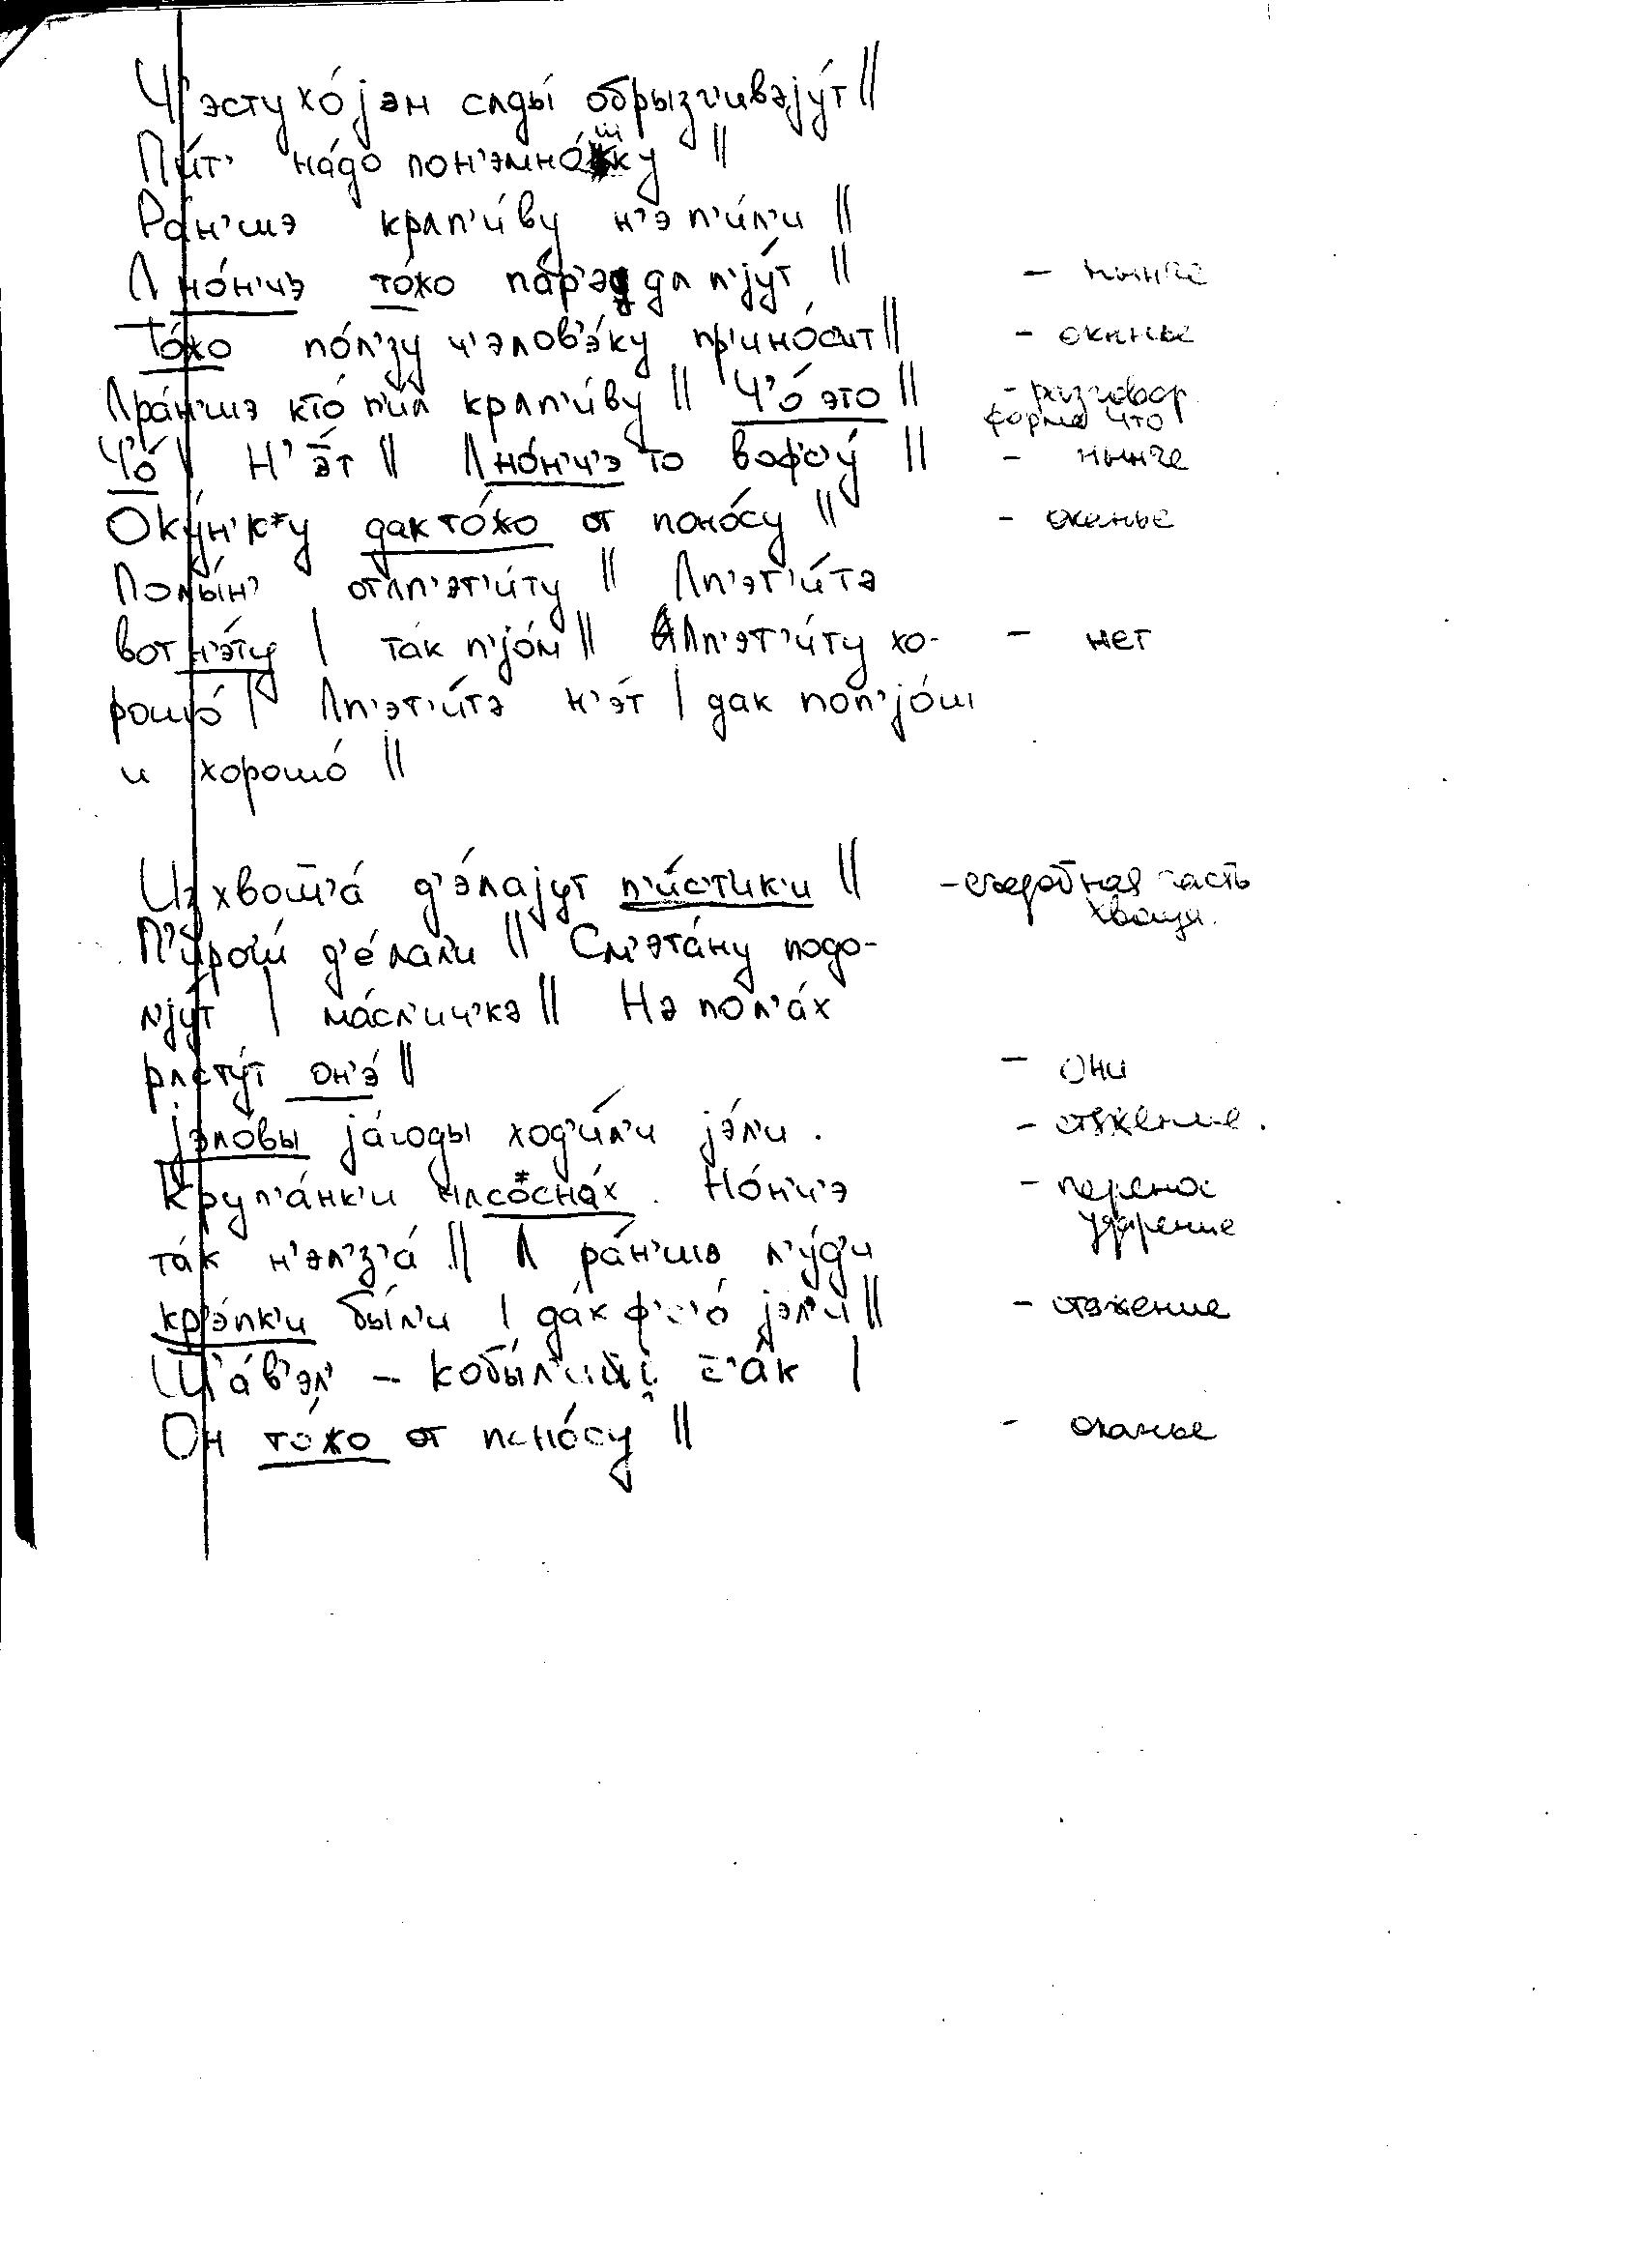 Ч'эстухо́јэм сʌды́ обры́зг'ивəју́т ||
Пи́т' на́до пон'эмно́шку ||
Ра́н'шэ крʌп'и́ву н'э п'и́л'и ||
Λ но́н'чэ то́жо па́р'эд дʌ п'ју́т || – нынче
То́жо по́л'зу ч'элов'э́ку пр'ино́с'ит || – оканье
Λ ра́н'шэ кто́ п'ил крʌп'и́ву || Ч'о́ это || – разговор.
форма что
Ч'о́ | Н'э́т || Λ но́н'ч'э то воф'с'у́ || – нынче
Оку́н'к*у дак то́жо от поно́су || – оканье
Полы́н' от ʌп'эт'и́ту || Λп'эт'и́тə
вот н'э́ту | та́к п'јо́м || Λп'эт'и́ту хо- – нет
рошо́ | Λп'эт'и́тə н'э́т | дак поп'јо́ш
и хорошо́ ||
Из хвош'а́ д'э́лајут п'и́с'тик'и || – съедобная часть
хвоща.
П'ирог'и́ д'е́лал'и || См'эта́ну подо-
л'ју́т | ма́сл'ич'кə || Нə пол'а́х
рʌсту́т он'э́ || – они
јэло́вы ја́годы ход'и́л'и јэ́л'и . – стяжение.
Круп'а́нк'и нʌ со*сна́х . Но́н'ч'э – перенос
ударение
та́к н'эл'з'а́ || Λ ра́н'шэ л'у́д'и
кр'э́пк'и бы́л'и | да́к ф'с'о́ јэл'и || – стяжение
Ш'а́в'эл' – кобы́л'ий с'ак |
Он то́жо от поно́су || – оканье